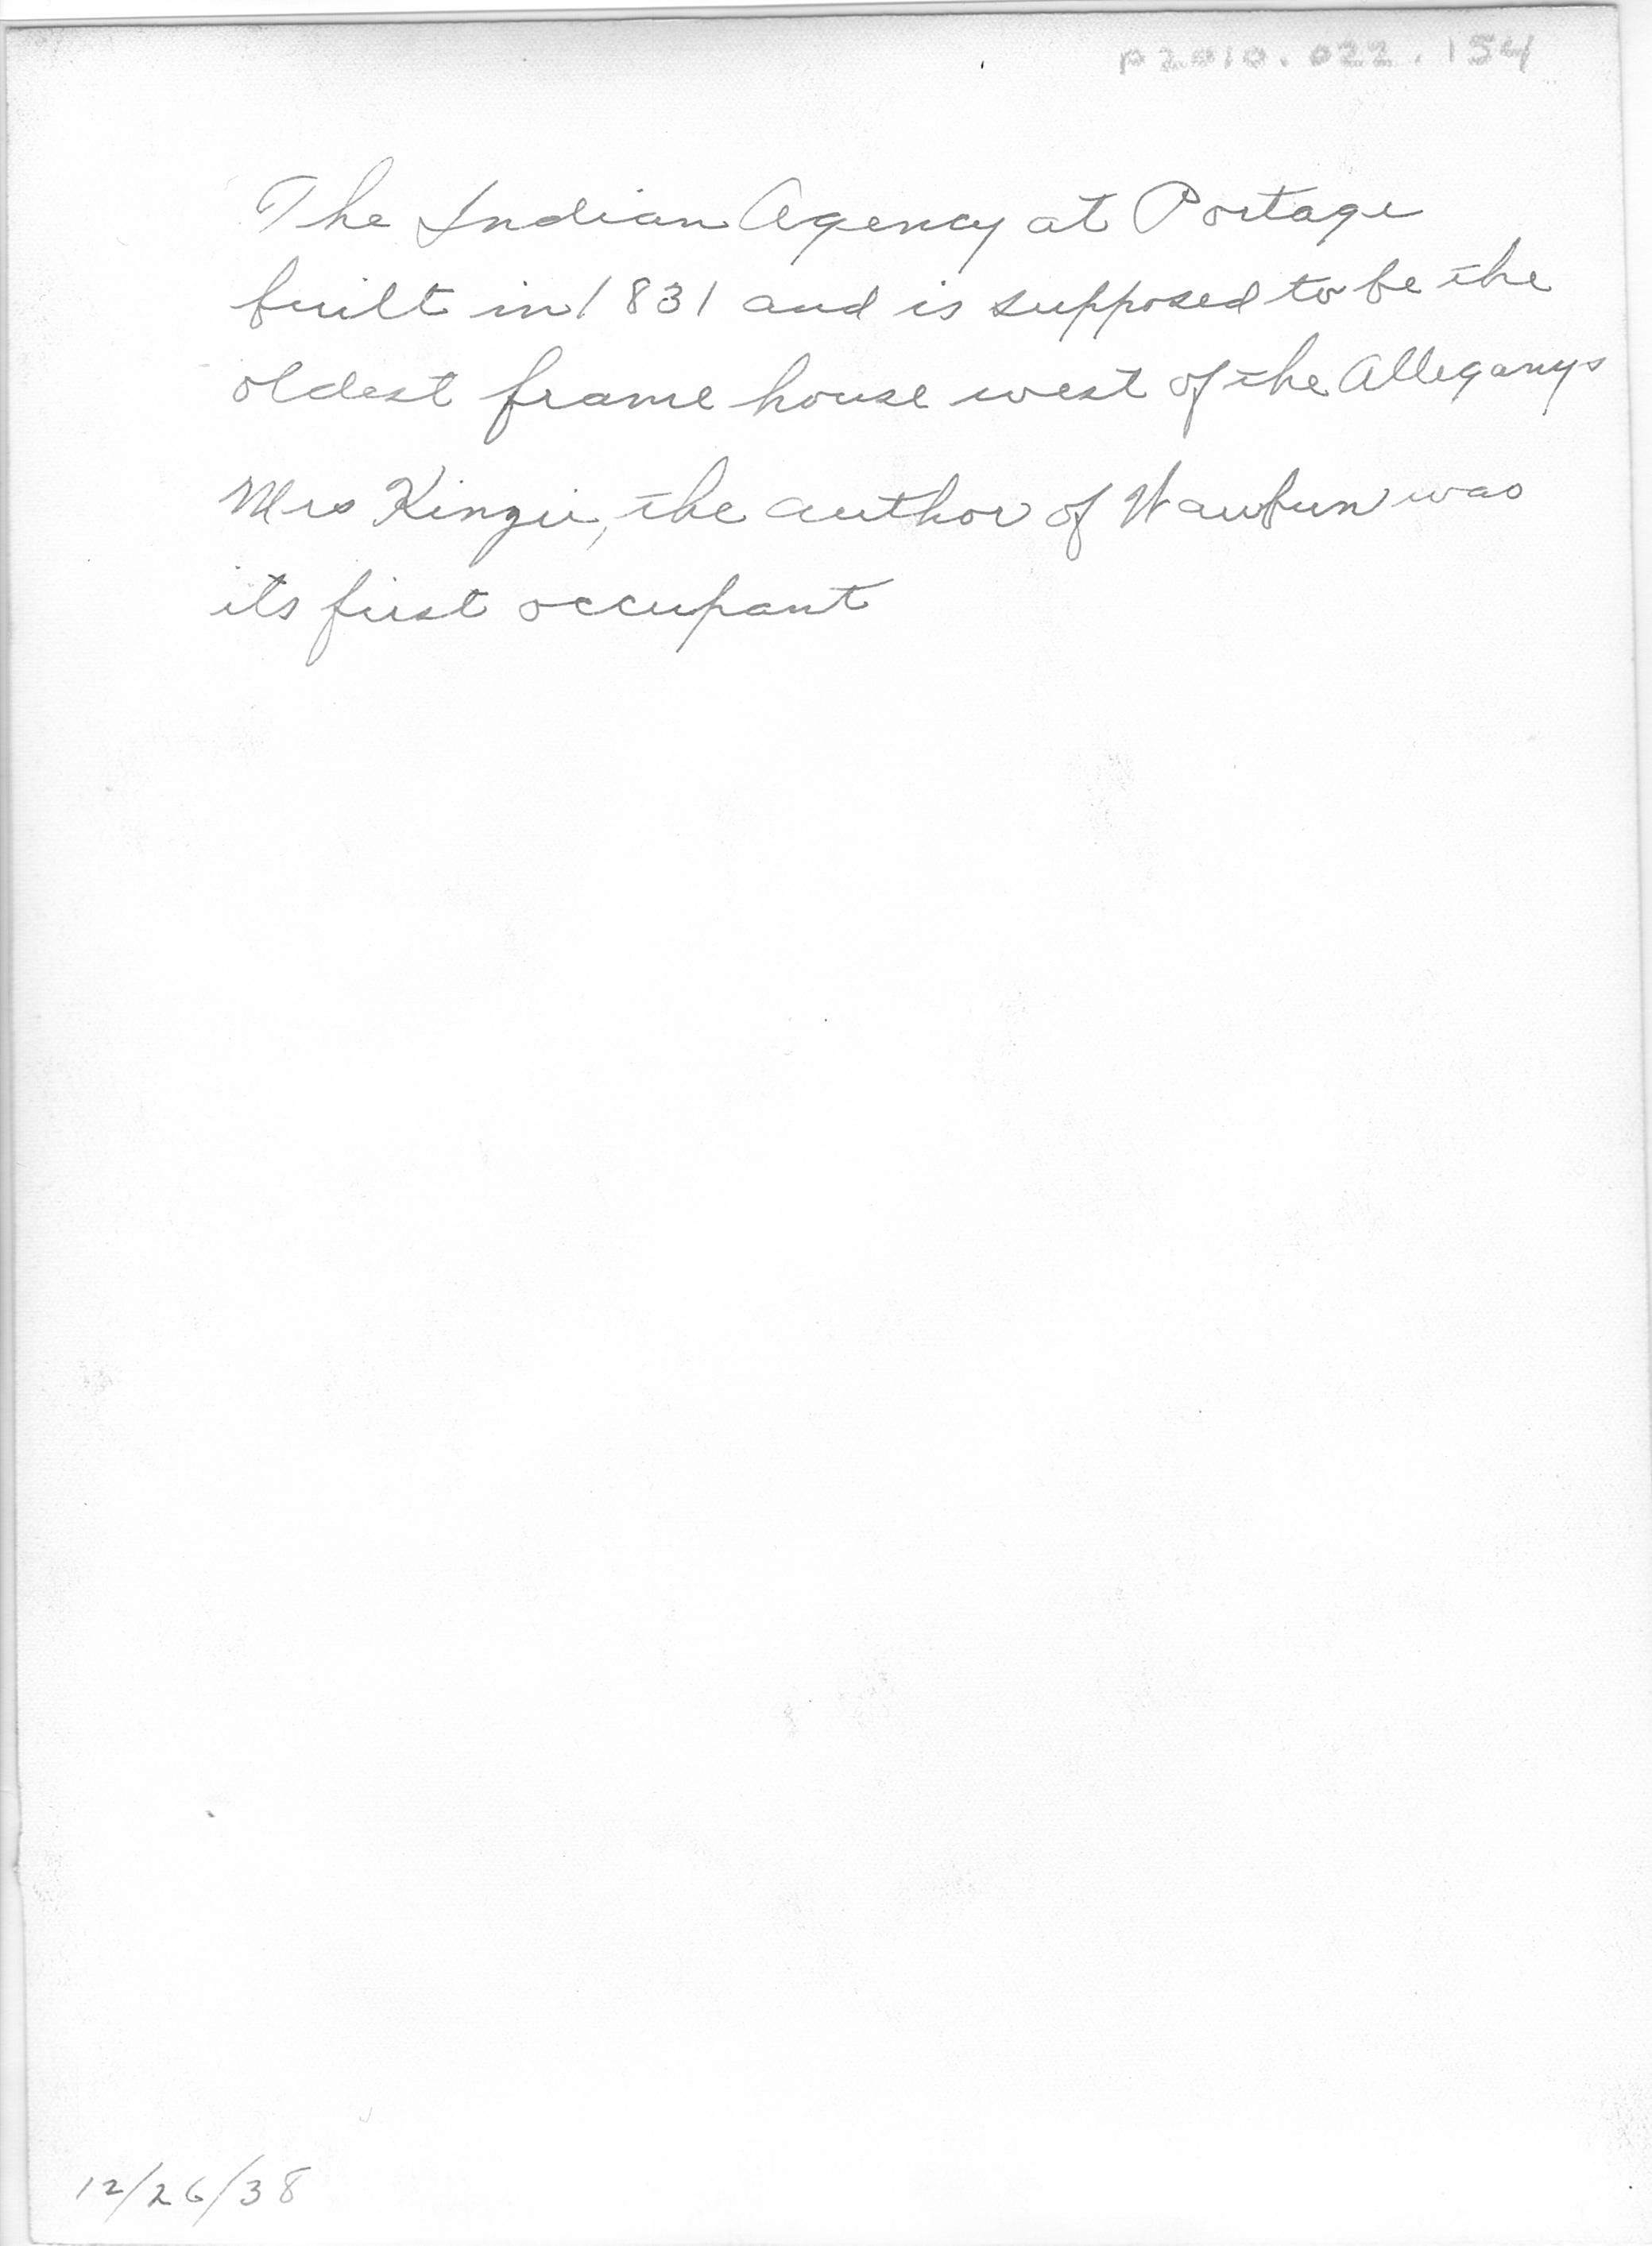 p2010.022.154
The Indian Agency at Portage
built in 1831 and is supposed to be the
oldest frame house west of the Alleganys
Mrs Kinzie, the author of Waubun was
its first occupant
12/26/38